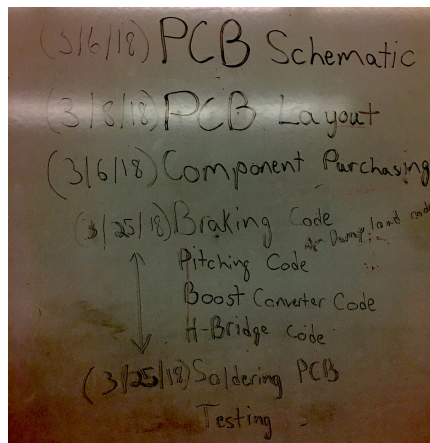 (3/6/18) PCB Schematic
(3/8/18) PCB Layout
(3/6/18) Component Purchasing
(3/25/18) Braking Code
Pitching Code
Boost Converter Code
H-Bridge Code
(3/25/18) Soldering PCB
Testing